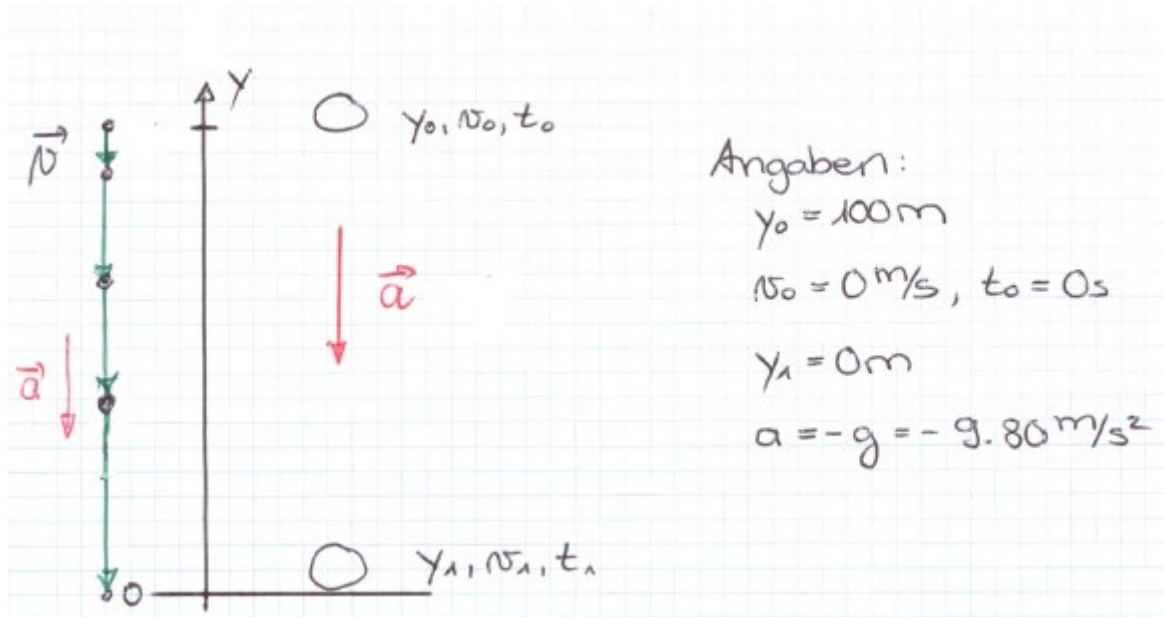 y
v⃗
y₀, v₀, t₀
a⃗
a⃗
0
y₁, v₁, t₁
Angaben:
y₀ = 100m
v₀ = 0 m/s, t₀ = 0s
y₁ = 0m
a = -g = - 9.80 m/s²